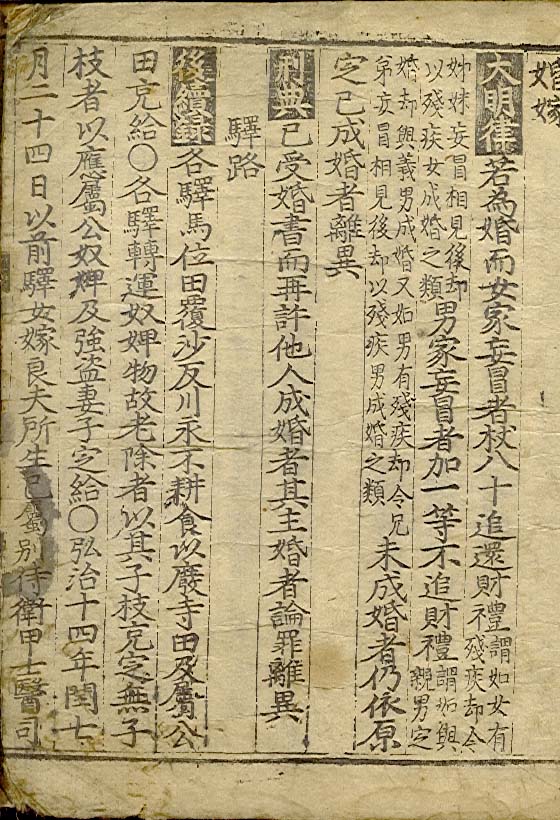 婚嫁
大明律若為婚而女家妄冒者杖八十追還財禮謂如女有殘疾却令
姊妹妄冒相見後却以殘疾女成婚之類男家妄冒者加一等不追財禮謂如與親男定
婚却與義男成婚又如男有殘疾却令兄弟妄冒相見後却以殘疾男成婚之類未成婚者仍依原
定已成婚者離異
刑典已受婚書而再許他人成婚者其主婚者論罪離異
驛路
後續錄各驛馬位田覆沙反川永不耕食以廢寺田及屬公
田充給○各驛轉運奴婢物故老除者以其子枝充定無子
枝者以應屬公奴婢及強盗妻子定給○弘治十四年閏七
月二十四日以前驛女嫁良夫所生已屬別侍衛甲士醫司